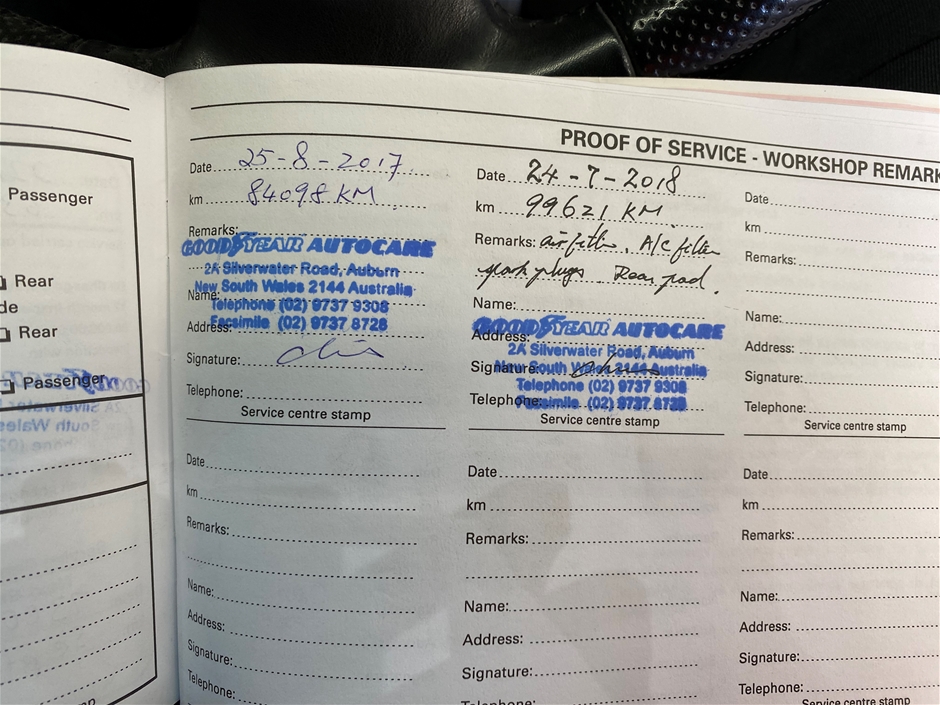 PROOF OF SERVICE - WORKSHOP REMARK
Passenger
Rear
de
Rear
Passenger
Date 25-8-2017
km 84098 KM
Remarks:
GOODYEAR AUTOCARE
2A Silverwater Road, Auburn
New South Wales 2144 Australia
Name:
Telephone (02) 9737 9308
Address:
Facsimile (02) 9737 8728
Signature:
Telephone:
Service centre stamp
Date 24-7-2018
km 99621 KM
Remarks: air filter. A/C filter
spark plugs. Rear pad.
Name:
GOODYEAR AUTOCARE
Address:
2A Silverwater Road, Auburn
Signature:
New South Wales 2144 Australia
Telephone (02) 9737 9308
Telephone:
Facsimile (02) 9737 8728
Service centre stamp
Date
km
Remarks:
Name:
Address:
Signature:
Telephone:
Service centre stamp
Date
km
Remarks:
Name:
Address:
Signature:
Telephone:
Date
km
Remarks:
Name:
Address:
Signature:
Date
km
Remarks:
Name:
Address:
Signature:
Telephone:
Service centre stamp